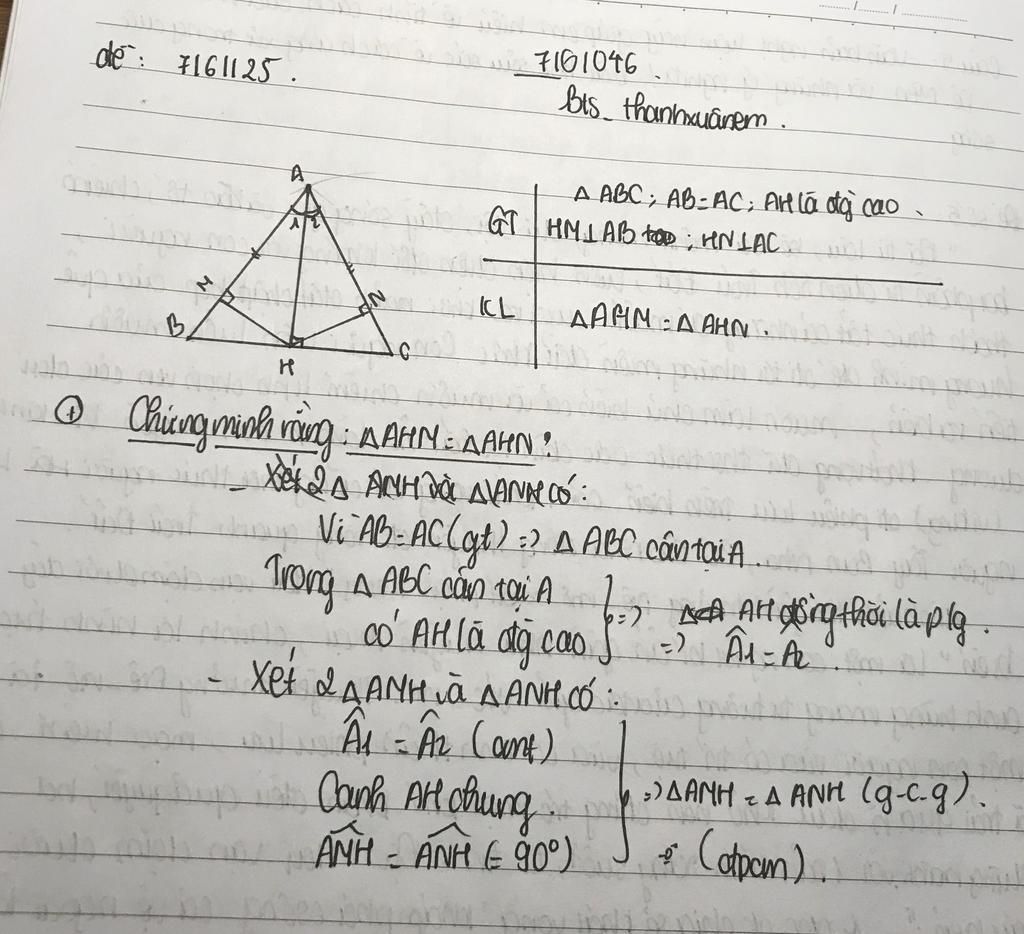 đề: 7161125.
7161046.
Bts_thanhxuânem.
A
1 2
M
N
B
H
C
GT
Δ ABC; AB=AC; AH là đg cao.
HM⊥AB ; HN⊥AC.
KL
ΔAHM = ΔAHN.
+ Chứng minh rằng: ΔAHM = ΔAHN?
- Xét 2Δ AMH và ΔANH có:
Vì AB=AC(gt) => Δ ABC cân tại A.
Trong Δ ABC cân tại A
có AH là đg cao
=> AH đồng thời là p/g.
=> Â1 = Â2.
- Xét 2ΔAMH và ΔANH có:
Â1 = Â2 (cmt)
Cạnh AH chung.
AMH = ANH (=90°)
=> ΔAMH = ΔANH (g-c-g).
(đpcm).